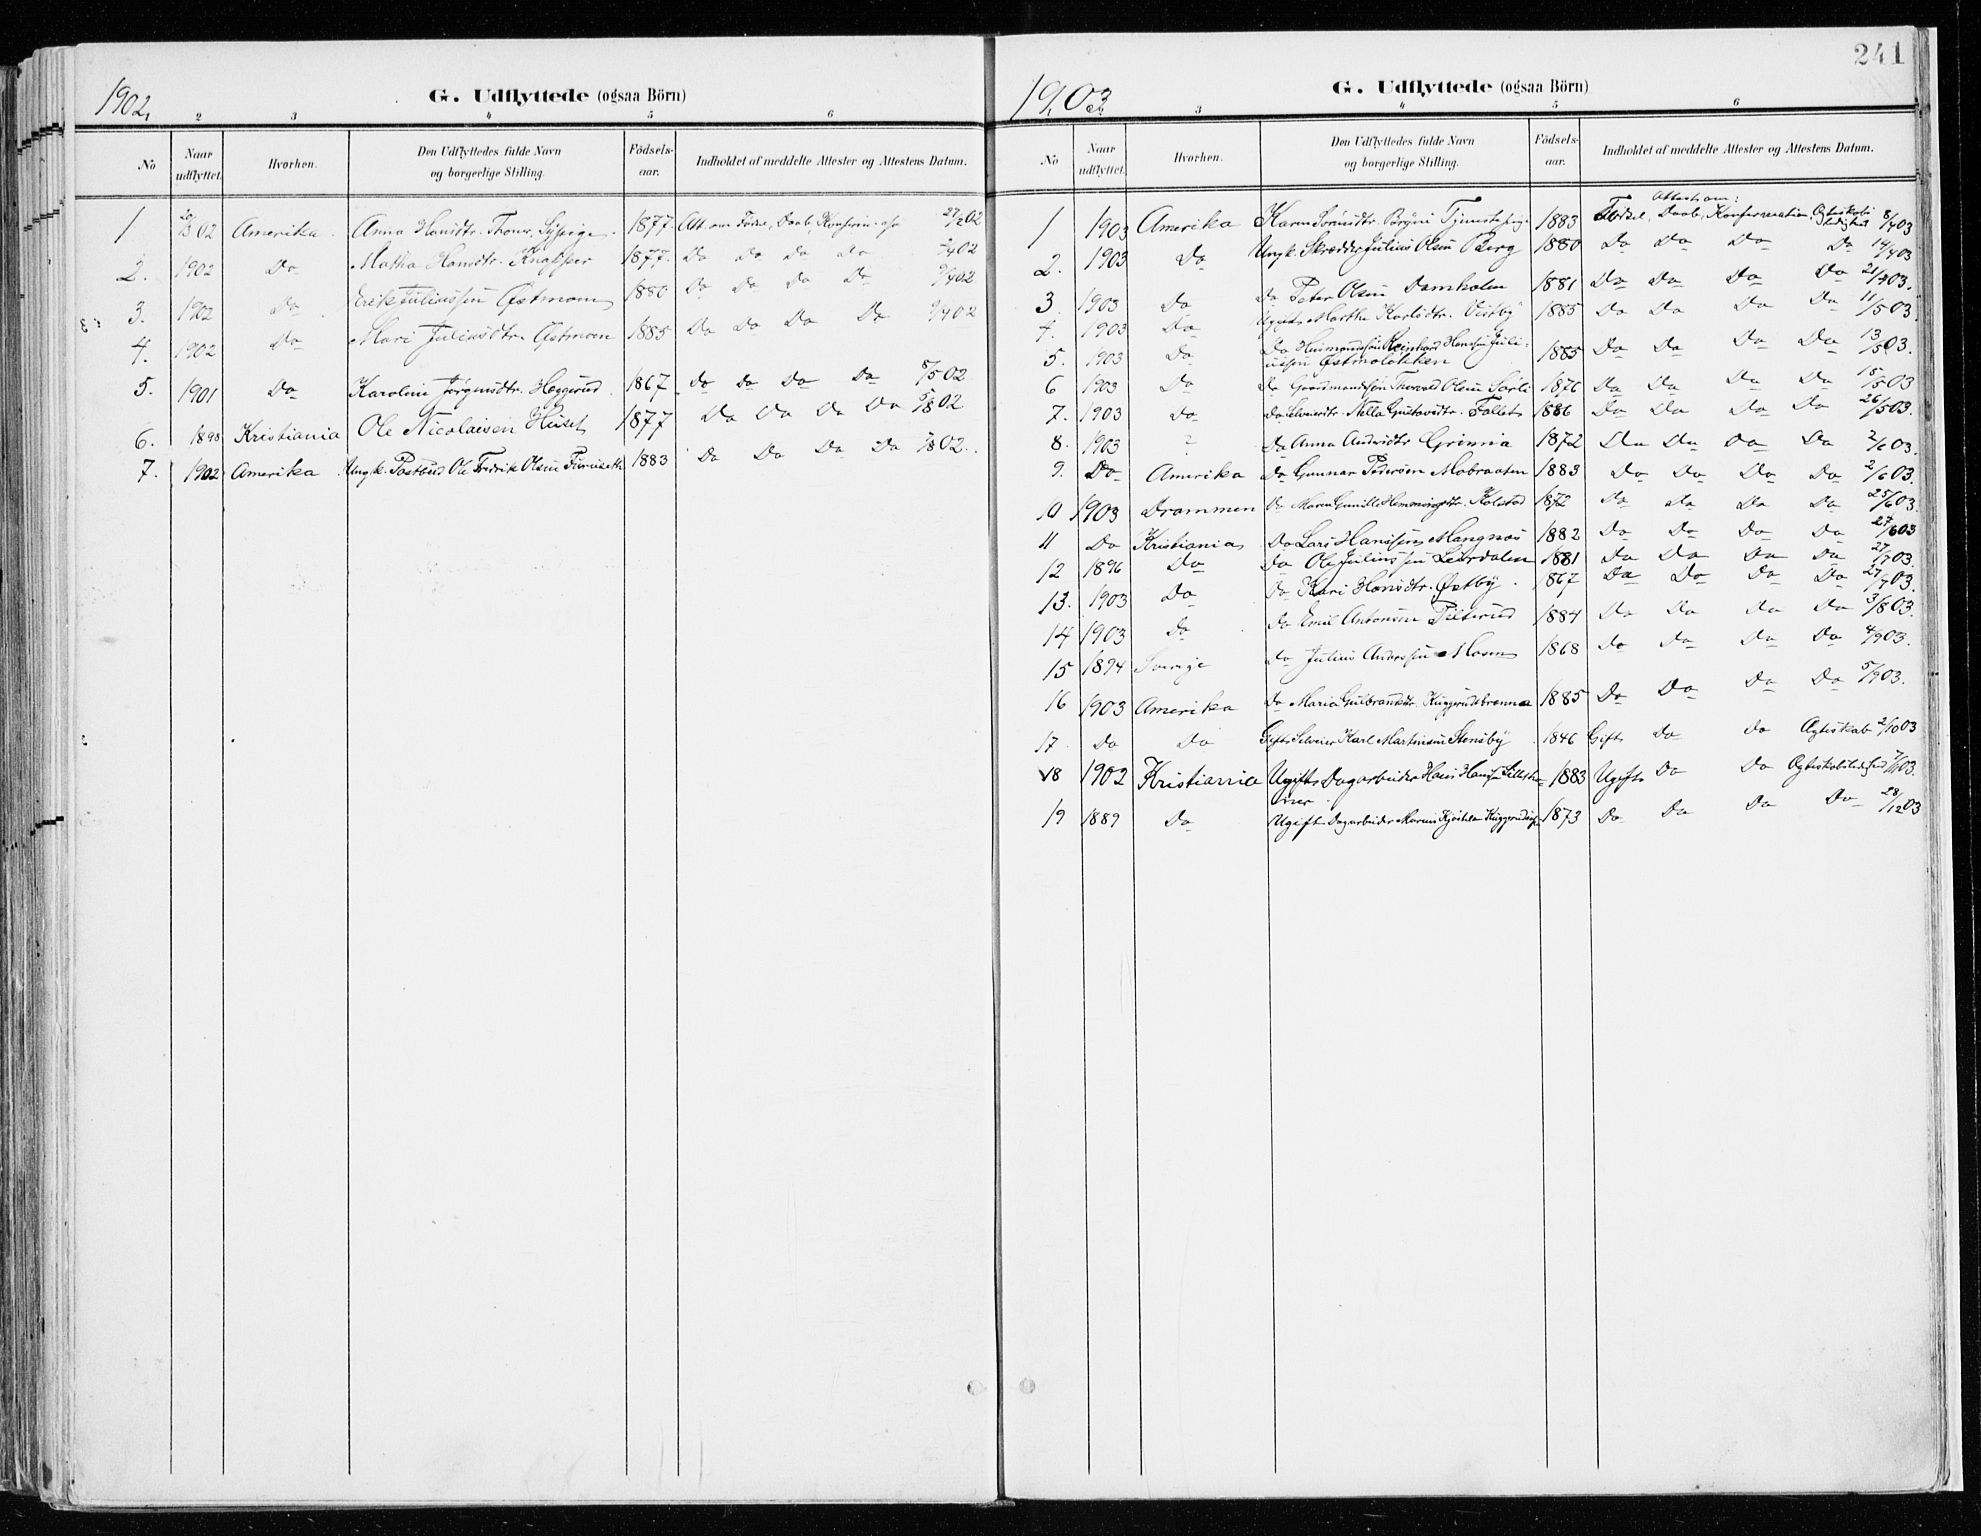 241
1902,
G. Udflyttede (ogsaa Börn)
2 3 4 5 6
No Naar udflyttet. Hvorhen. Den Udflyttedes fulde Navn og borgerlige Stilling. Födsels-aar. Indholdet af meddelte Attester og Attestens Datum.
1 20/3 02 Amerika. Anna Hansdtr. 1877. Att. om Födsel, Daab, Konfirm. 27/2 02
2. 1902 Do Hansdtr. 1877. Do Do Do Do 2/4 02
3. 1902 Do Erik Juliussen Østmoen 1880 Do Do Do Do 9/4 02
4. 1902 Do Mari Juliusdtr. Østmoen 1885 Do Do Do Do 9/4 02
5. 1901 Do Karoline Jørgensdtr. Heggerud. 1867. Do Do Do Do 8/5 02
6. 1898 Kristiania Ole Nicolaisen Huset 1877 Do Do Do Do /8 02
7. 1902 Amerika Ungk. Postbud Ole Fredrik Olsen Furuseth 1883 Do Do Do Do /8 02.
1903
G. Udflyttede (ogsaa Börn)
3 4 5 6
No Naar udflyttet. Hvorhen. Den Udflyttedes fulde Navn og borgerlige Stilling. Födsels-aar. Indholdet af meddelte Attester og Attestens Datum.
Attest om:
1 1903 Amerika Karen 1883 Födsel, Daab, Konfirmation, Ægteskabs ledighed 8/4 03
2. 1903 Do Ungk. Skrædder Julius Olsen Berg 1880 Do Do Do Do 14/4 03
3 1903 Do Do Peter Olsen Damholen 1881 Do Do Do Do 21/4 03.
4. 1903 Do Ugift Marthe Karlsdtr. Vestby 1885 Do Do Do Do 11/5 03.
5. 1903 Do Do Husmandssøn Reinhard Hansen Juli-
ussen Østmoløkken 1885 Do Do Do Do 13/5 03.
6 1903 Do Do Gaardmandssøn Thorvald Olsen Sørli 1876 Do Do Do Do 15/5 03
7. 1903 Do Do Nella Gustavsdtr. Fallet 1886 Do Do Do Do 26/5 03.
8. 1903 ? Do Anna Grinna 1872 Do Do Do Do 2/6 03.
9. Do Amerika Do Gunnar Pedersen Mobraaten 1883 Do Do Do Do 2/6 03.
10 1903 Drammen Do Maren Gunille Hemmingsdtr. Kolstad 1872 Do Do Do Do 25/6 03.
11 Do Kristiania Do Lars Hanssen Mangnæs 1882 Do Do Do Do 27/6 03
12 1896 Do Do Ole Juliussen Leirdalen 1881 Do Do Do Do 27/7 03.
13. 1903 Do Do Kari Hansdtr. Østby. 1867 Do Do Do Do 27/7 03.
14 1903 Do Do Emil Antonsen Pilterud 1884 Do Do Do Do 3/8 03.
15 1894 Sverige Do Julius Anderssen Mosen 1868 Do Do Do Do 4/9 03.
16 1903 Amerika Do Maria Gulbrandsdtr. Kuggerudsbrenna 1885 Do Do Do Do 5/9 03.
17. Do Do Gift Selveier Karl Martinsen Stensby 1846 Gift Do Do Ægteskab 2/10 03
18 1902 Kristiania Ugift Dagarbeider Hans 1883 Ugift Do Do Ægteskabsledighed 7/11 03.
19 1889 Do Ugift Dagarbeider 1873 Do Do Do Do 28/12 03